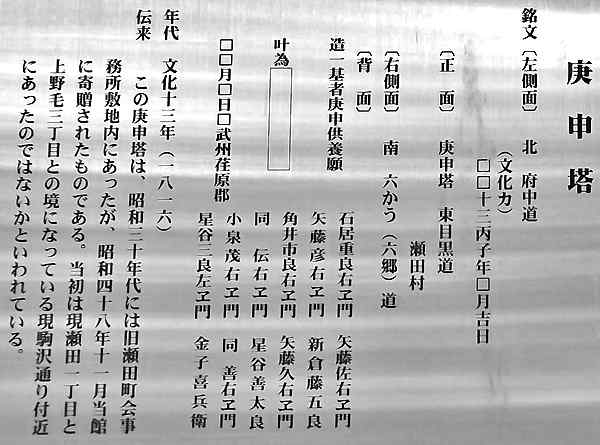 庚申塔
銘文〔左側面〕 北 府中道
(文化カ)
□□十三丙子年□月吉日
〔正 面〕 庚申塔 東目黒道
瀬田村
〔右側面〕 南 六かう(六郷)道
〔背 面〕
造一基者庚申供養願
叶為
□□月□日□武州荏原郡
石居重良右ヱ門 矢藤佐右ヱ門
矢藤彦右ヱ門 新倉藤五良
角井市良右ヱ門 矢藤久右ヱ門
同 伝右ヱ門 星谷善太良
小泉茂右ヱ門 同 善右ヱ門
星谷三良左ヱ門 金子喜兵衛
年代 文化十三年(一八一六)
伝来 この庚申塔は、昭和三十年代には旧瀬田町会事
務所敷地内にあったが、昭和四十八年十一月当館
に寄贈されたものである。当初は現瀬田一丁目と
上野毛三丁目との境になっている現駒沢通り付近
にあったのではないかといわれている。